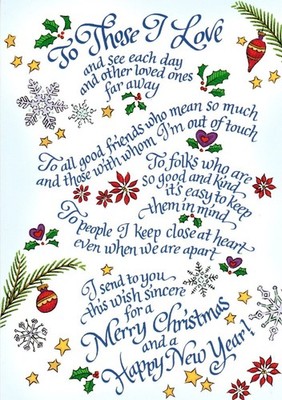 To Those I Love
and see each day
and other loved ones
far away
To all good friends who mean so much
and those with whom I'm out of touch
To folks who are
so good and kind
it's easy to keep
them in mind
To people I keep close at heart
even when we are apart
I send to you
this wish sincere
for a
Merry Christmas
and a
Happy New Year!